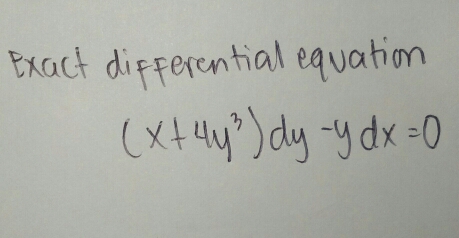 Exact differential equation
(x+4y³)dy -y dx =0